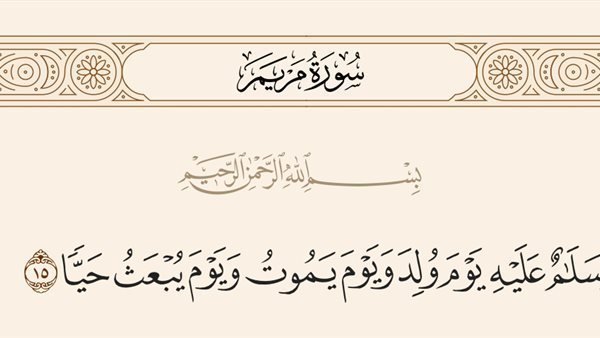 سُورَةُ مَرْيَمَ
بِسْمِ اللَّهِ الرَّحْمَٰنِ الرَّحِيمِ
سَلَامٌ عَلَيْهِ يَوْمَ وُلِدَ وَيَوْمَ يَمُوتُ وَيَوْمَ يُبْعَثُ حَيًّا ١٥